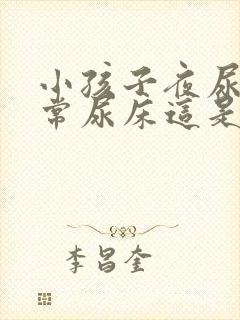 小孩子夜尿
常尿床這是
李昌奎